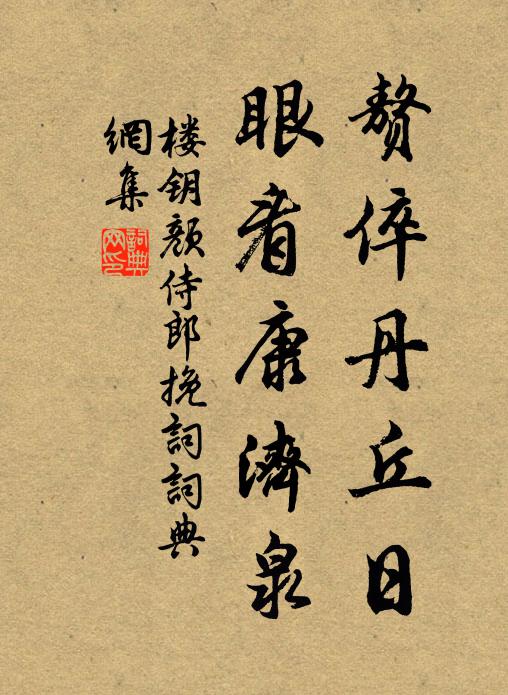 赘倅丹丘日
眼看康濟泉
楼钥颜侍郎挽詞詞典
網集
詞典
网印